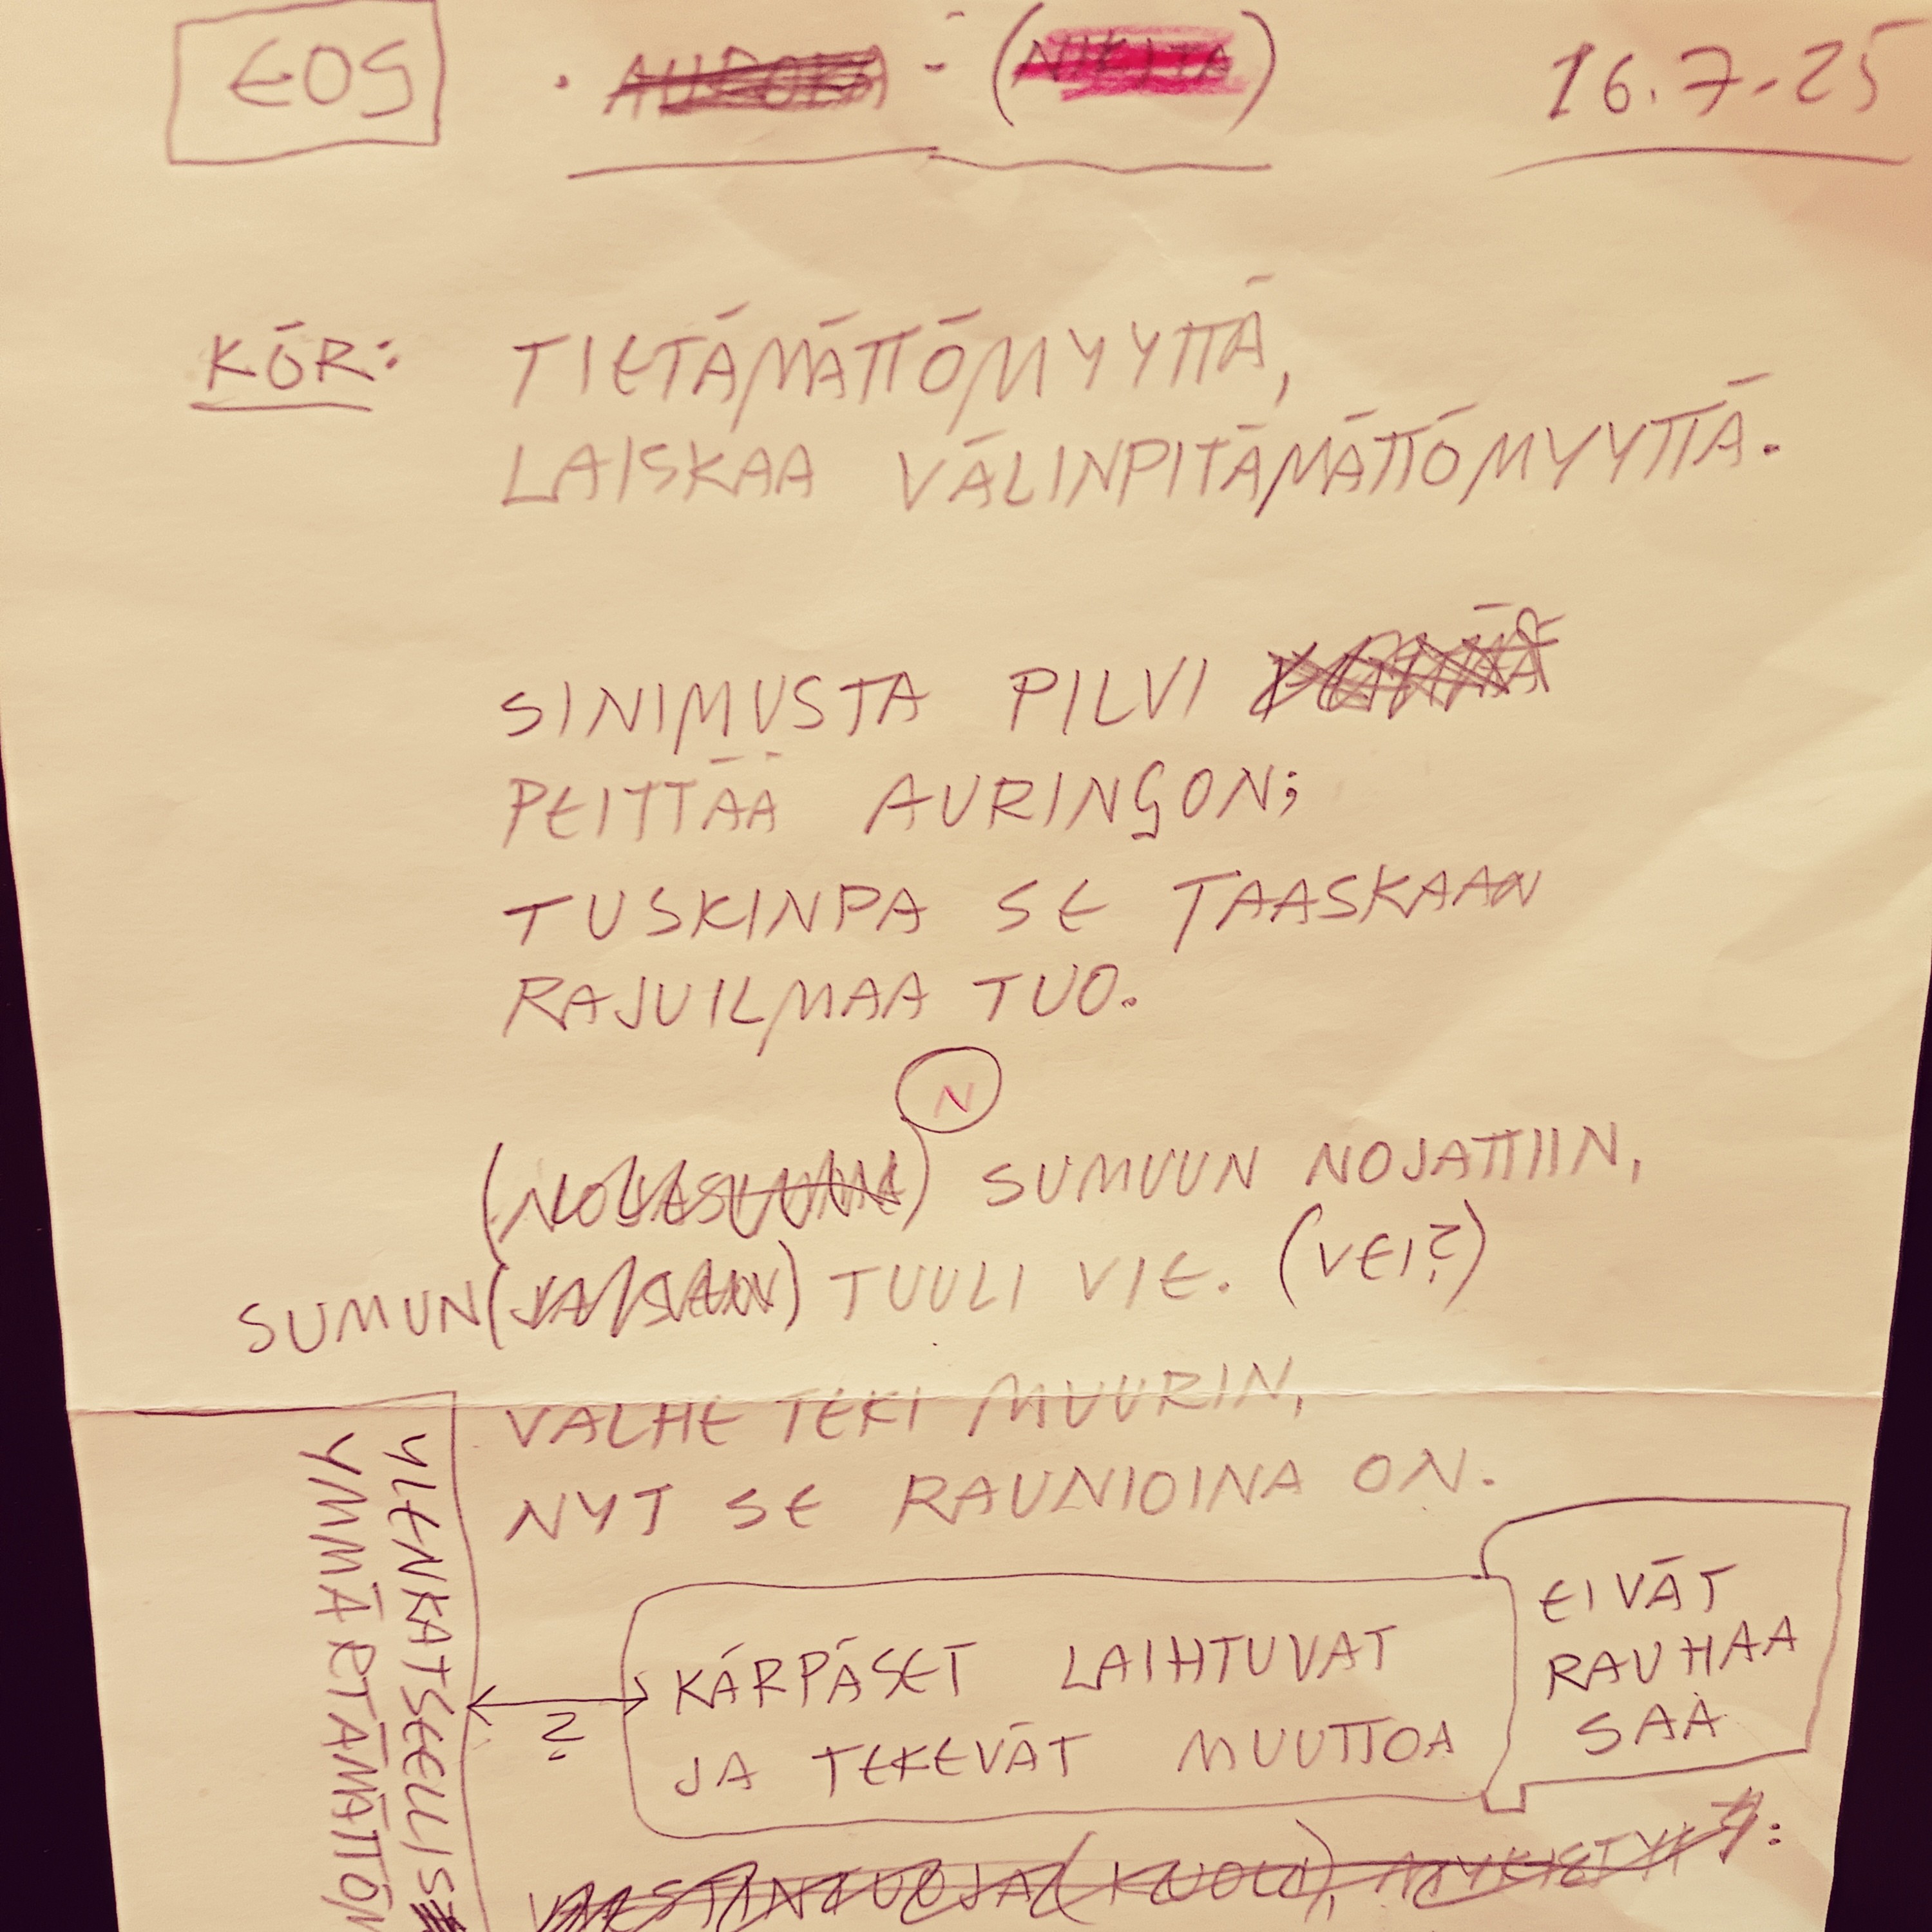 EOS 16.7.25
KÖR: TIETÄMÄTTÖMYYTTÄ,
LAISKAA VÄLINPITÄMÄTTÖMYYTTÄ.
SINIMUSTA PILVI
PEITTÄÄ AURINGON;
TUSKINPA SE TAASKAAN
RAJUILMAA TUO.
N
SUMUUN NOJATTIIN,
SUMUN TUULI VIE. (VEI?)
VALHE TEKI MUURIN,
NYT SE RAUNIOINA ON.
KÄRPÄSET LAIHTUVAT
JA TEKEVÄT MUUTTOA
EIVÄT
RAUHAA
SAA
?
YLENKATSEELLIS
YMMÄRTÄMÄTTÖM